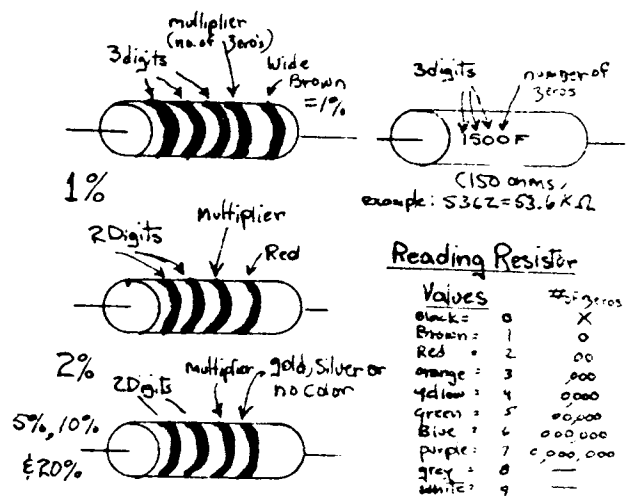 multiplier
(no. of zero's)
3 digits
Wide
Brown
= 1%
1%
3 digits
number of
zeros
1500F
(150 ohms,
example: 5362 = 53.6 KΩ
2 Digits
Multiplier
Red
2%
2 Digits
multiplier
gold, Silver or
no Color
5%, 10%
& 20%
Reading Resistor
Values
# of zeros
Black = 0 X
Brown = 1 0
Red = 2 00
orange = 3 ,000
yellow = 4 0,000
green = 5 00,000
Blue = 6 000,000
purple = 7 0,000,000
grey = 8 —
white = 9 —